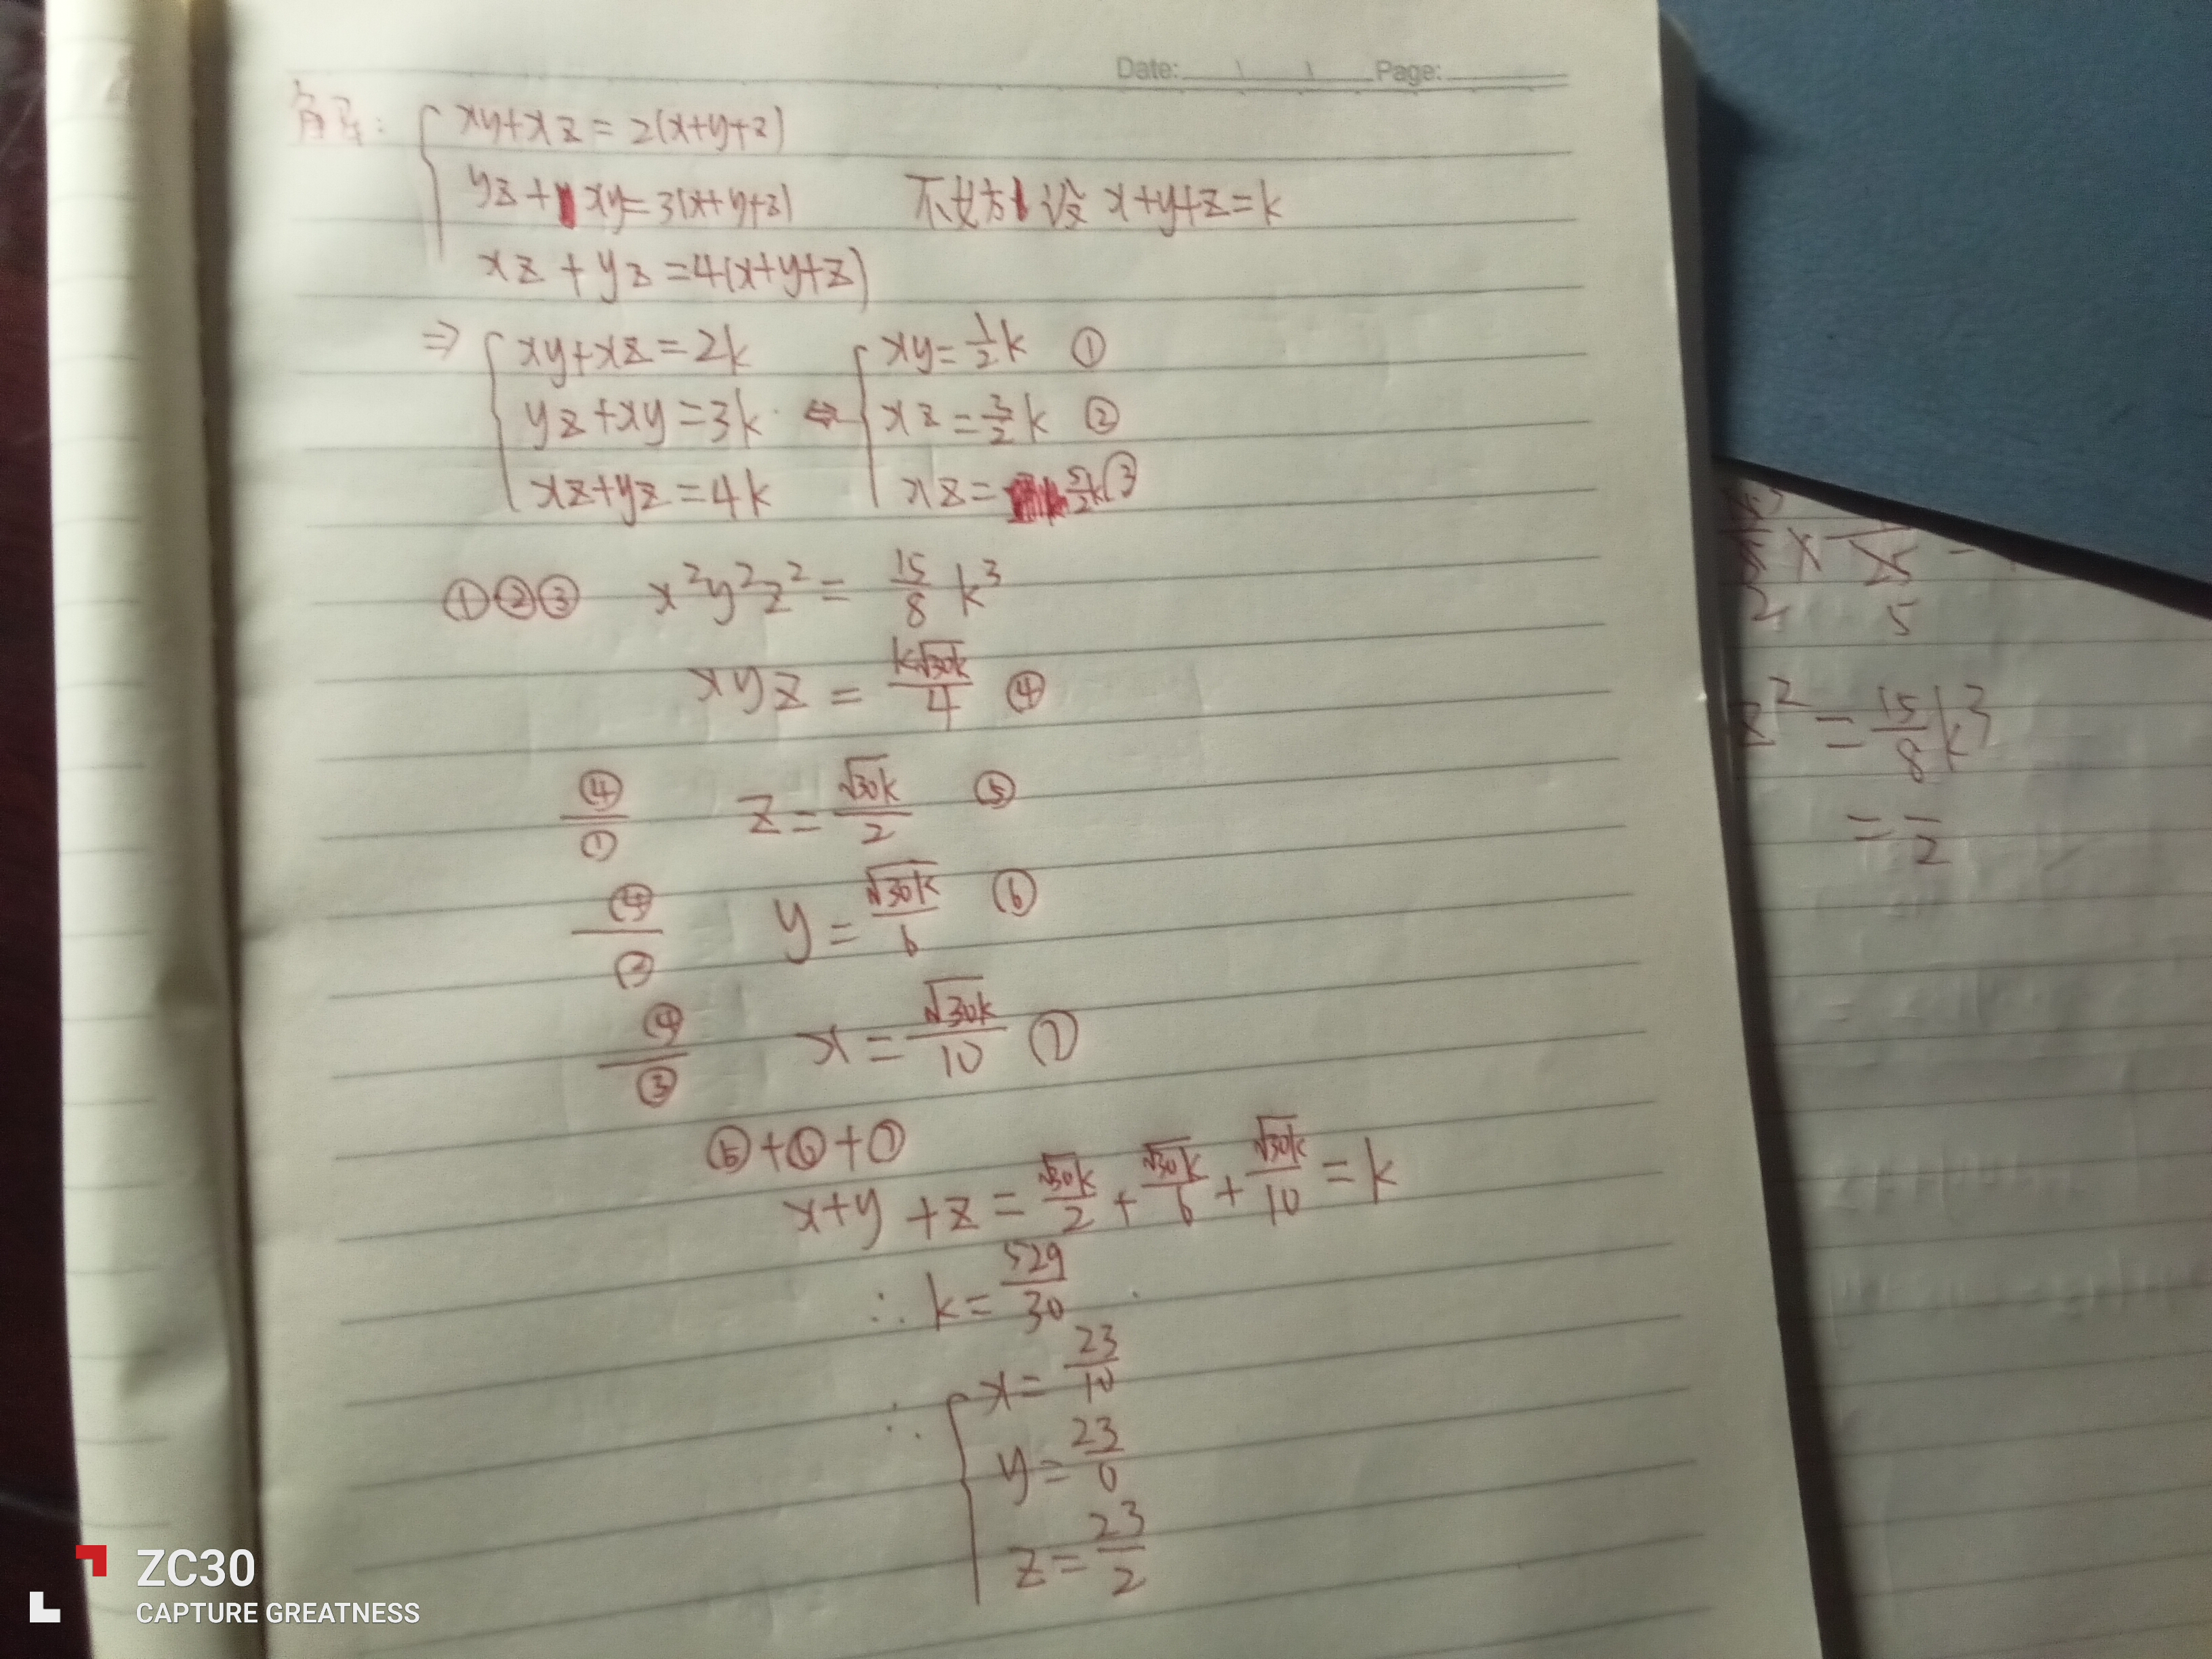 Date: Page:
解: xy+xz=2(x+y+z)
yz+xy=3(x+y+z) 不妨设 x+y+z=k
xz+yz=4(x+y+z)
⇒ xy+xz=2k xy=1/2k ①
yz+xy=3k ⇔ xz=3/2k ②
xz+yz=4k xz=5/2k ③
①②③ x²y²z²=15/8 k³
xyz=k√30k/4 ④
④/① z=√30k/2 ⑤
④/② y=√30k/6 ⑥
④/③ x=√30k/10 ⑦
⑤+⑥+⑦
x+y+z=√30k/2+√30k/6+√30k/10=k
∴k=529/30
∴ x=23/10
y=23/6
z=23/2
5
2
z²=15/8k³
=—/2
ZC30
CAPTURE GREATNESS